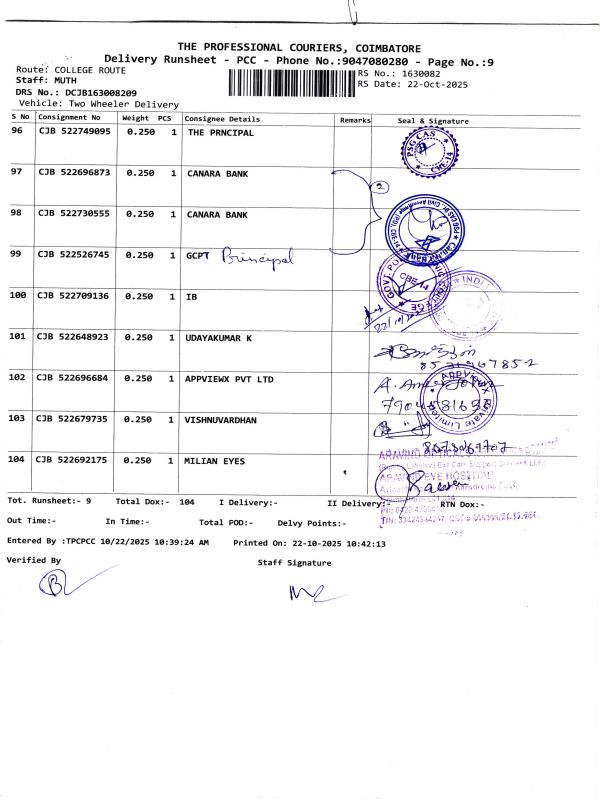 THE PROFESSIONAL COURIERS, COIMBATORE
Delivery Runsheet - PCC - Phone No.:9047080280 - Page No.:9
Route: COLLEGE ROUTE
Staff: MUTH
RS No.: 1630082
DRS No.: DCJB163008209
RS Date: 22-Oct-2025
Vehicle: Two Wheeler Delivery
S No Consignment No Weight PCS Consignee Details Remarks Seal & Signature
96 CJB 522749095 0.250 1 THE PRNCIPAL
PSG CAS
CBE-14
97 CJB 522696873 0.250 1 CANARA BANK
2
98 CJB 522730555 0.250 1 CANARA BANK
99 CJB 522526745 0.250 1 GCPT Principal
CBE-14
100 CJB 522709136 0.250 1 IB
101 CJB 522648923 0.250 1 UDAYAKUMAR K
102 CJB 522696684 0.250 1 APPVIEWX PVT LTD
APPVIEWX Private Limited
103 CJB 522679735 0.250 1 VISHNUVARDHAN
104 CJB 522692175 0.250 1 MILIAN EYES
ARAVIND EYE HOSPITAL
Tot. Runsheet:- 9 Total Dox:- 104 I Delivery:- II Delivery:- RTN Dox:-
Out Time:- In Time:- Total POD:- Delvy Points:-
Entered By :TPCPCC 10/22/2025 10:39:24 AM Printed On: 22-10-2025 10:42:13
Verified By Staff Signature